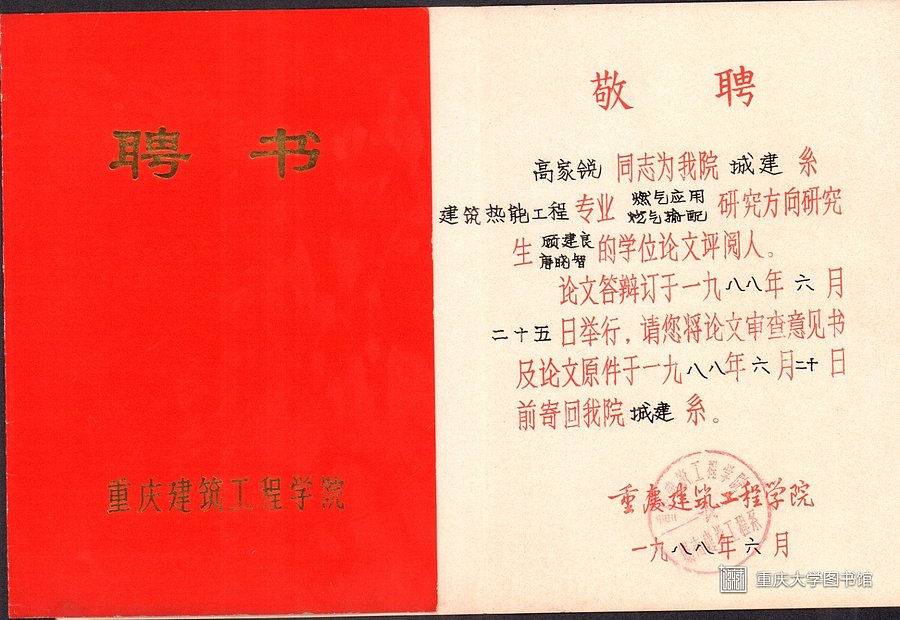 聘书
重庆建筑工程学院
敬聘
高家锐 同志为我院 城建 系
建筑热能工程 专业 燃气应用 研究方向研究
燃气输配
生 顾建良 的学位论文评阅人。
唐晓智
论文答辩订于一九八八年六月
二十五日举行,请您将论文审查意见书
及论文原件于一九八八年六月二十日
前寄回我院 城建 系。
重庆建筑工程学院
一九八八年六月
重庆大学图书馆